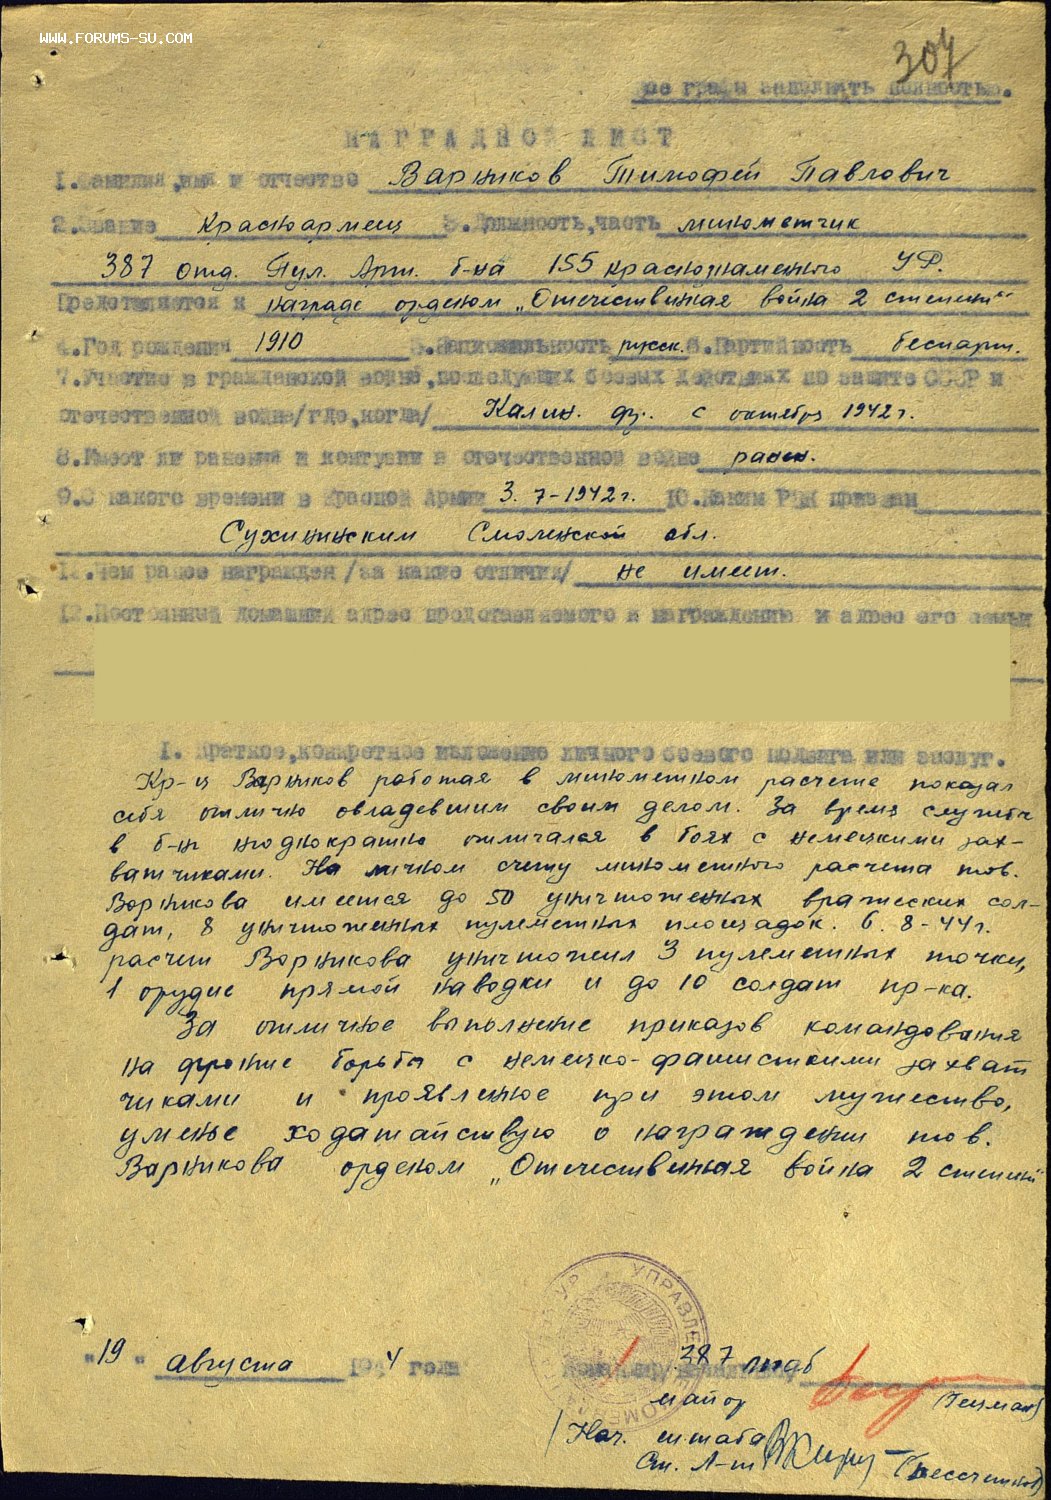 WWW.FORUMS-SU.COM
307
все графы заполнять полностью.
НАГРАДНОЙ ЛИСТ
1.Фамилия,имя и отчество Варников Тимофей Павлович
2.Звание Красноармеец 3.Должность,часть минометчик
387 отд. Пул. Арт. б-на 155 краснознаменного УР.
Представляется к награде орденом „Отечественная война 2 степени"
4.Год рождения 1910 5.Национальность русск. 6.Партийность беспарт.
7.Участие в гражданской войне,последующих боевых действиях по защите СССР и
отечественной войне/где,когда/ Калин. фр. с октября 1942г.
8.Имеет ли ранения и контузии в отечественной войне ранен.
9.С какого времени в Красной Армии 3.7-1942г. 10.Каким РВК призван
Сухиничским Смоленской обл.
11.Чем ранее награжден/за какие отличия/ не имеет.
12.Постоянный домашний адрес представляемого к награждению и адрес его семьи
I. Краткое,конкретное изложение личного боевого подвига или заслуг.
Кр-ц Варников работая в минометном расчете показал
себя отлично овладевшим своим делом. За время службы
в б-не неоднократно отличался в боях с немецкими зах-
ватчиками. На личном счету минометного расчета тов.
Варникова имеется до 50 уничтоженных вражеских сол-
дат, 8 уничтоженных пулеметных площадок. 6.8-44г.
расчет Варникова уничтожил 3 пулеметных точки,
1 орудие прямой наводки и до 10 солдат пр-ка.
За отличное выполнение приказов командования
на фронте борьбы с немецко-фашисткими захват
чиками и проявленное при этом мужество,
уменье ходатайствую о награждении тов.
Варникова орденом „Отечественная война 2 степени"
"19" августа 1944 года
387 опаб
майор
(Гецман)
Нач. штаба
Ст. Л-т
УПРАВЛЕ